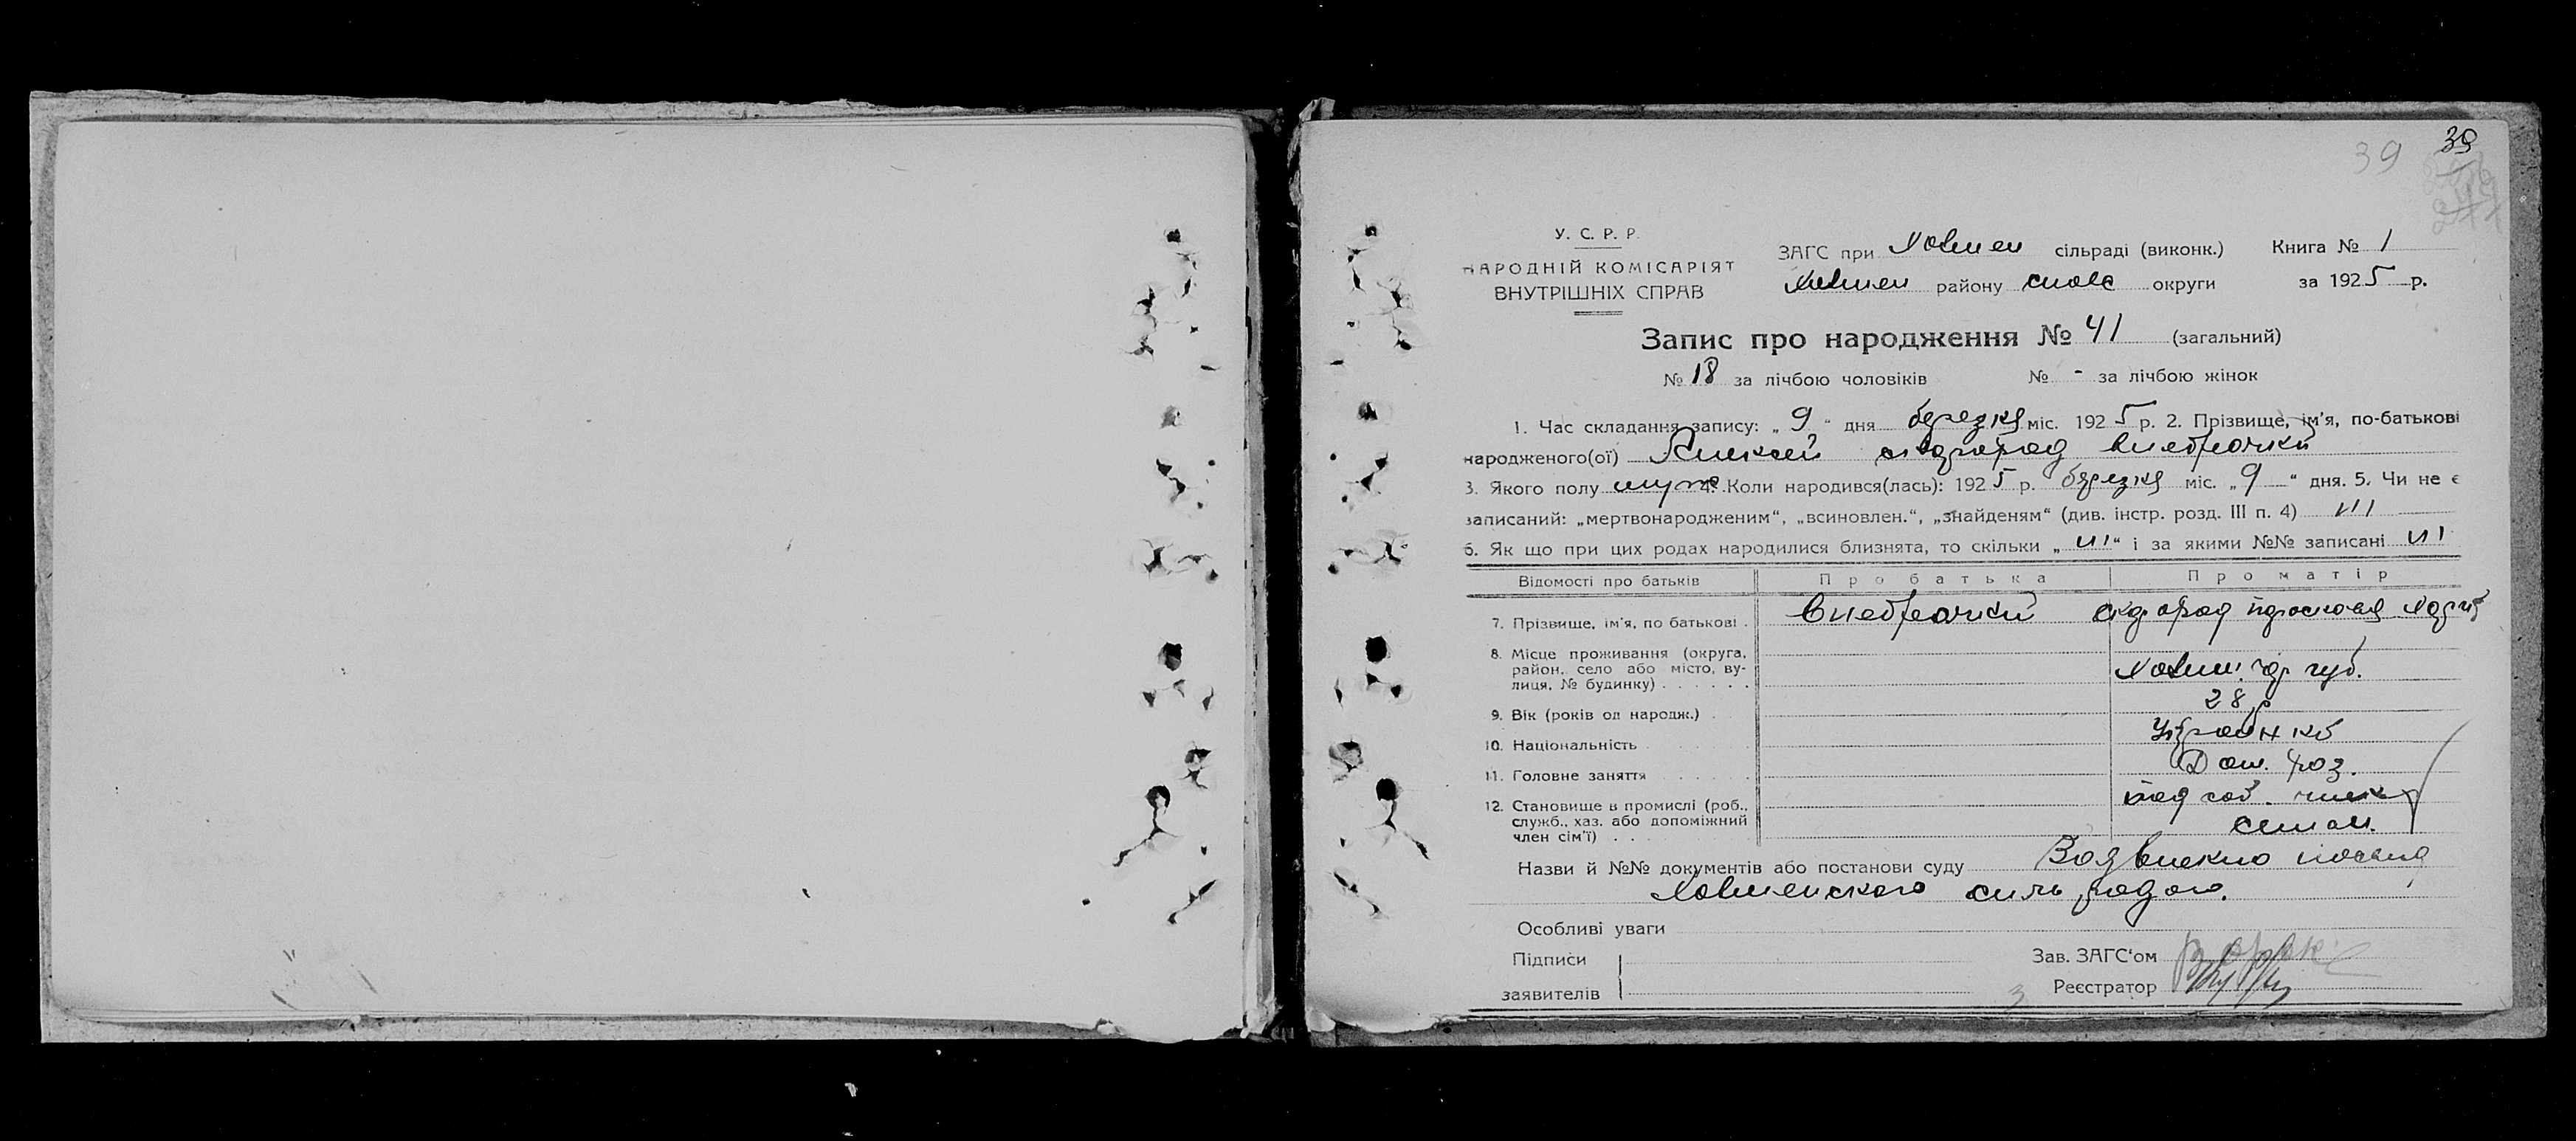 39 39
У. С. Р. Р.
НАРОДНІЙ КОМІСАРІЯТ
ВНУТРІШНІХ СПРАВ
ЗАГС при Холмен сільраді (виконк.) Книга № 1
Холмен району снов округи за 1925 р.
Запис про народження № 41 (загальний)
№ 18 за лічбою чоловіків № - за лічбою жінок
1. Час складання запису: „ 9 “ дня березня міс. 1925 р. 2. Прізвище, ім'я, по-батькові
народженого(ої) Алексей внебрачний
3. Якого полу муж 4. Коли народився(лась): 1925 р. березня міс. „ 9 “ дня. 5. Чи не є
записаний: „мертвонародженим“, „всиновлен.“, „знайденям“ (див. інстр. розд. III п. 4) ні
6. Як що при цих родах народилися близнята, то скільки „ ні “ і за якими №№ записані ні
Відомості про батьків Про батька Про матір
7. Прізвище, ім'я, по батькові . внебрачний
8. Місце проживання (округа,
район, село або місто, ву-
лиця, № будинку) . . . . . . Холм. чр губ.
9. Вік (років од народж.) . 28 р
10. Національність
11. Головне заняття Дом. хоз.
12. Становище в промислі (роб.,
служб., хаз. або допоміжний
член сім'ї) . . .
Назви й №№ документів або постанови суду
Холменского
Особливі уваги
Підписи Зав. ЗАГС‘ом
заявителів Реєстратор